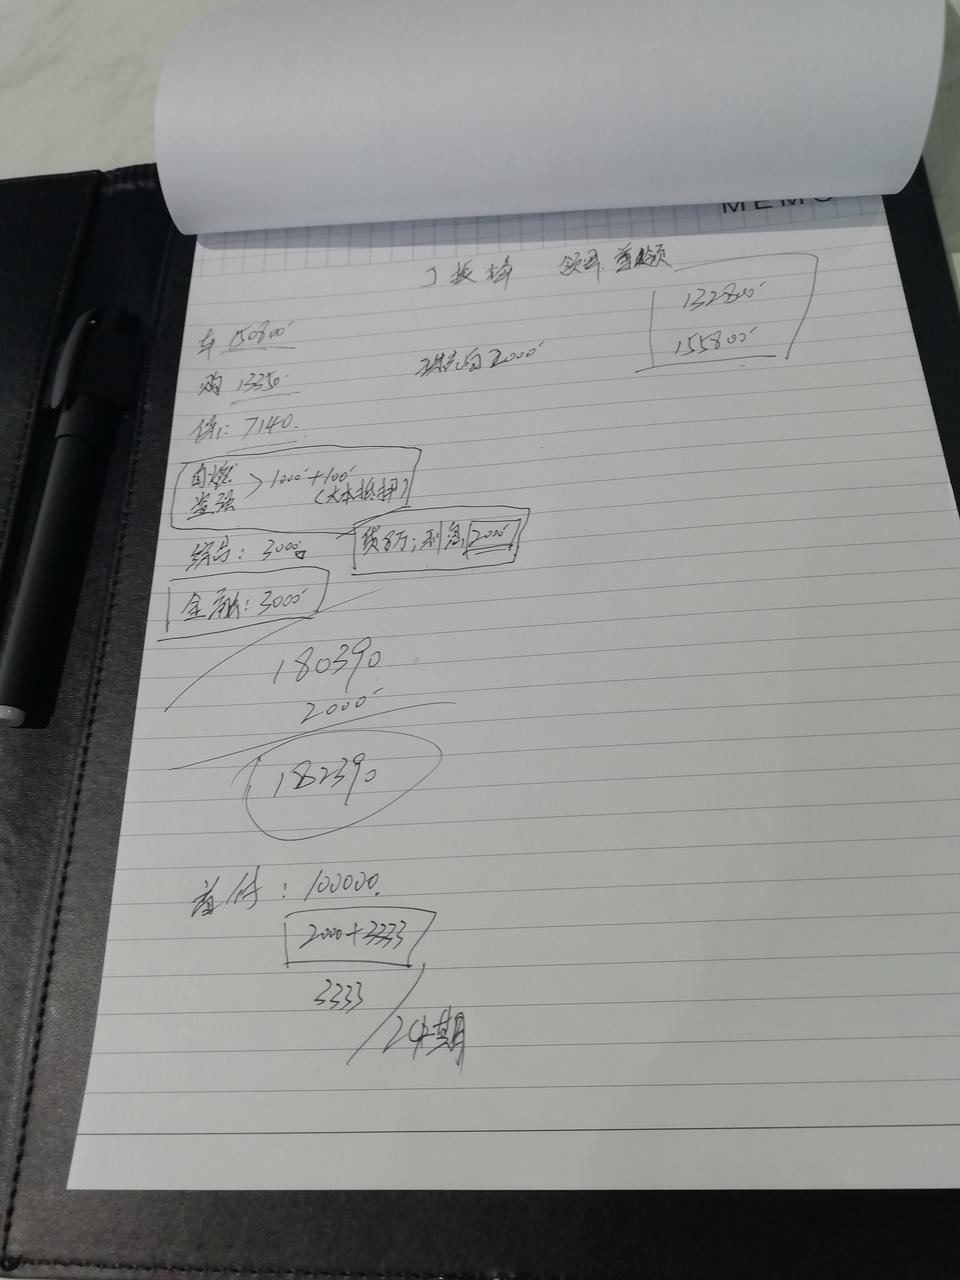 MEMO
丁振锋 领克 尊领
132800
155800
车 150800
购 13350
祺先自 2000
保: 7140.
自燃
盗强 > 1000+100 (大本抵押)
续: 3000
贷8万; 利息 2000
金融: 3000
180390
2000
182390
首付: 100000
2000+3333
3333
24期